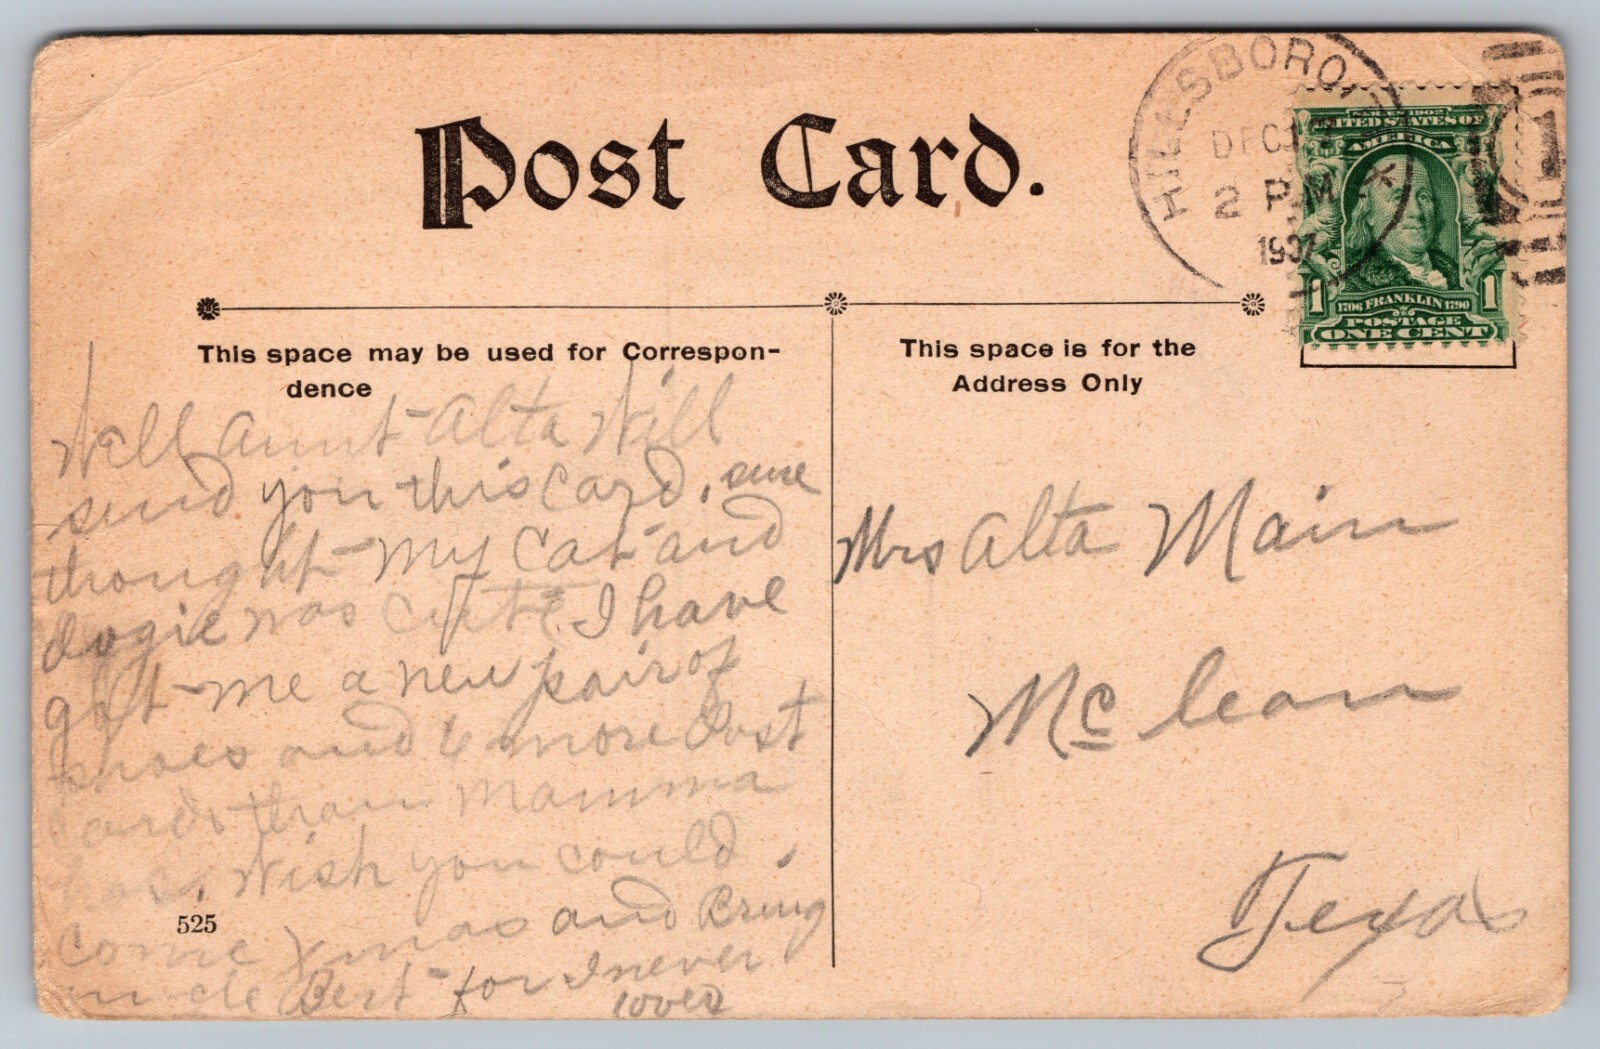 Post Card.
HILLSBORO, TEX
DEC
2 P.M
1907
1
SERIES 1902
UNITED STATES OF
AMERICA
1706 FRANKLIN 1790
1 1
POSTAGE
ONE CENT
This space may be used for Correspon-
dence
This space is for the
Address Only
Well Aunt Alta Will
send you this Card, sure
thought My Cat and
dogie was Cute I have
got me a new pair of
shoes and 6 more Post
Cards than Mamma
has. Wish you could
come Xmas and Bring
uncle Bert for I never
loved
525
Mrs Alta Main
Mc lean
Texas